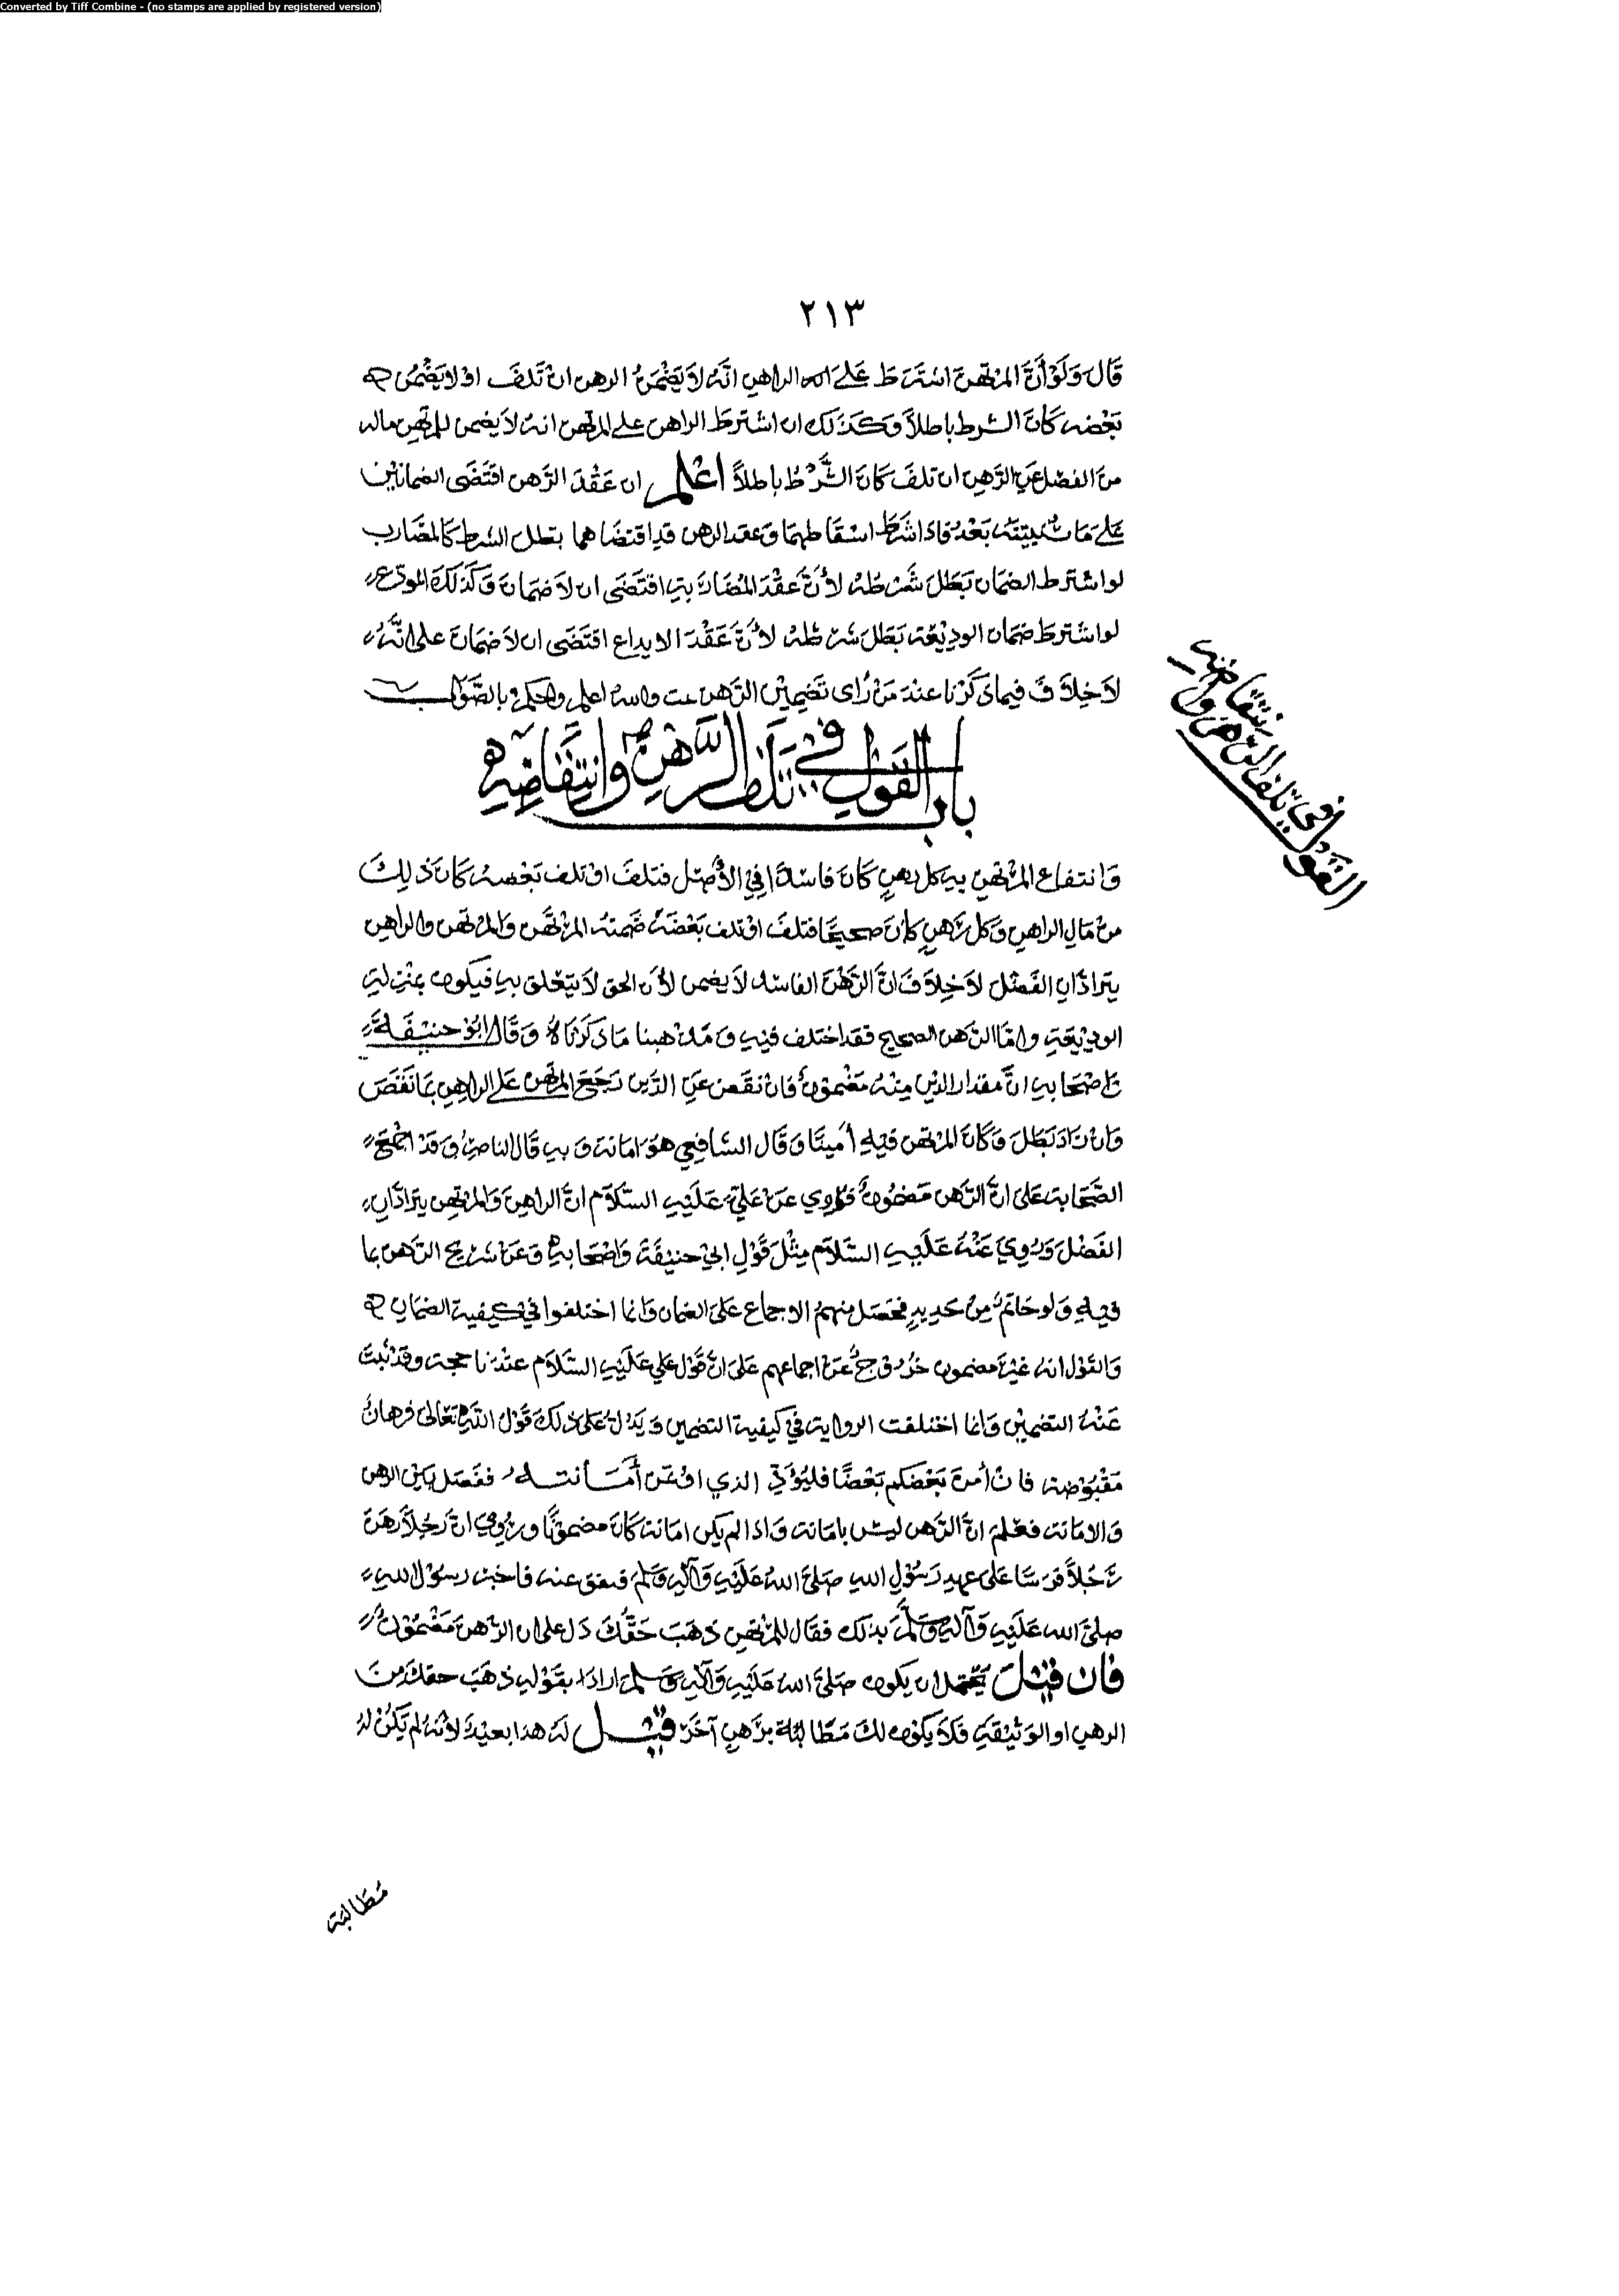 Converted by Tiff Combine - (no stamps are applied by registered version)
٢١٣
قَالَ وَلَوْ أَنَّ المرتهنَ اشترط عَلىَ الراهنِ انّهُ لاَ يَضْمَنُ الرهن ان تَلفَ اوْ لا يَضْمن
بَعْضه كَانَ الشرط باطلاً وكَذَلك ان اشترطَ الراهن على المرتهن انهُ لاَ يضمن للمرتهن ماله
منَ الفضل عَنِ الرَّهنِ ان تلفَ كَانَ الشَّرْطُ باطلاً اعْلم ان عَقْدَ الرَّهن اقتَضَى الضمانين
عَلىَ مَا نُبيّنهُ بَعْدُ فاذا شَرطَ اسْقَاطهمَا وَعقد الرهن قدِ اقتضَاهما بَطل الشرط كَالمضَارب
لو اشترط الضمَان بَطَلَ شَرطهُ لأنَّ عَقْدَ المُضَاربَةِ اقتَضَى ان لاَ ضمَانَ وَكَذَلكَ المودَع
لو اشترطَ ضمَان الوديْعَة بَطَلَ شَرطهُ لأنَّ عَقْدَ الايداع اقتَضَى ان لاَ ضمَانَ على انَّهُ
لاَ خِلاَفَ فيما ذكَرْنا عندَ مَنْ رَأى تَضمِيْن الرّهن والله اعلم واحكم بالصَّوَاب
بَاب القَوْل فِي تَلَف الرَّهْنِ وَانتِقَاضِهِ
القَوْل فِي تلف الرهن وانتقاضه
وَانتفاع المرْتهن بهِ كل رهنٍ كَانَ فاسدًا فِي الأَصْل فتلفَ اوْ تلف بَعْضهُ كَانَ ذلِكَ
منْ مَالِ الراهنِ وَكل رَهنٍ كَانَ صحيحًا فتلفَ اوْ تلف بَعْضَهُ ضَمنَهُ المرْتَهن وَالمرْتهن والراهن
يتَرَادَّانِ الفَضْل لاَ خِلاَفَ انَّ الرَّهْنَ الفاسد لاَ يضمن لأنَ الحق لاَ يتعْلق بهِ فيكون بمنزلةِ
الوديْعَةِ وامَّا الرَّهن الصحيح فقد اختلف فيْهِ وَمَذهبنا مَا ذكَرْنَاهُ وَقَالَ ابُوْ حنيْفَةَ
وَاصْحَابهِ انَّ مقدار الدين مِنْهُ مَضْمونٌ فانْ نقَصَ عَنِ الدَّين رَجَعَ المرتهن عَلى الراهنِ بمَا نَقَصَ
وَانْ زادَ بَطَلَ وَكَانَ المرتهن فيهِ أَمينًا وَقَال الشَّافعي هوَ امَانة وَبهِ قَال الناصرُ وَقَدْ اجمعَ
الصَّحَابة عَلىَ انَّ الرَّهن مَضمُونٌ فرُوِي عَنْ عَليّ عَلَيْهِ السَّلاَم انَّ الراهنَ وَالمرتهن يترَادَّانِ
الفَضْلَ وَرُوِيَ عَنْهُ عَلَيْهِ السَّلاَم مِثْلَ قَوْلِ ابيْ حنيْفَةَ وَاصْحَابهِ وَعَنْ شريح الرَّهن بما
فيْهِ وَلو خاتَمٌ مِنْ حَديدٍ فحَصَل منهمُ الاجماع عَلىَ الضمان وَانما اختلفوا في كيفية الضمَان
وَالقَوْل انهُ غيْرَ مضمون خرُوْجٌ عَنْ اجماعهم عَلىَ انَّ قَوْلَ علي عَلَيْهِ السَّلاَم عنْدَنا حجة وقدْ ثبتَ
عَنْهُ التضميْن وَانما اختلفت الرواية في كيفية التضمين وَيَدُلّ عَلىَ ذلكَ قَوْل اللَّهِ تعَالى فرهانٌ
مَقْبُوْضة فانْ أَمنَ بَعْضكم بَعْضًا فليُؤَدِّ الذي اؤتمن أَمَانتهُ ففصَل بَين الرهن
وَالامَانة فعلمَ انَّ الرَّهن ليْسَ بامَانة وَاذا لم يكن امَانة كَانَ مضمونًا ورُوي انَّ رَجُلاً رَهنَ
رَجُلاً فَرسًا عَلىَ عهدِ رَسُوْلِ اللهِ صَلىَّ اللهُ عَلَيْهِ وَآلهِ وَسَلم فنفق عنده فاخبرَ رسوْل اللهِ
صلىَّ الله عَلَيْهِ وَآلهِ وَسَلَّم بذلك فقَال للمرْتهن ذهَبَ حَقُّكَ دَل على ان الرَّهنَ مَضْمُوْنٌ
فان قيْلَ يحْتمل ان يكون صَلىَّ اللهُ عَلَيْهِ وَآلهِ وَسَلم ارادَ بقَوْلهِ ذهَبَ حقك منَ
الرهن او الوَثيْقَةِ فَلاَ يكون لكَ مَطَالبَة برَهنٍ آخَر قيْل لهُ هذا بعيْد لأنهُ لم يَكنْ لهُ
مُطَالبَة